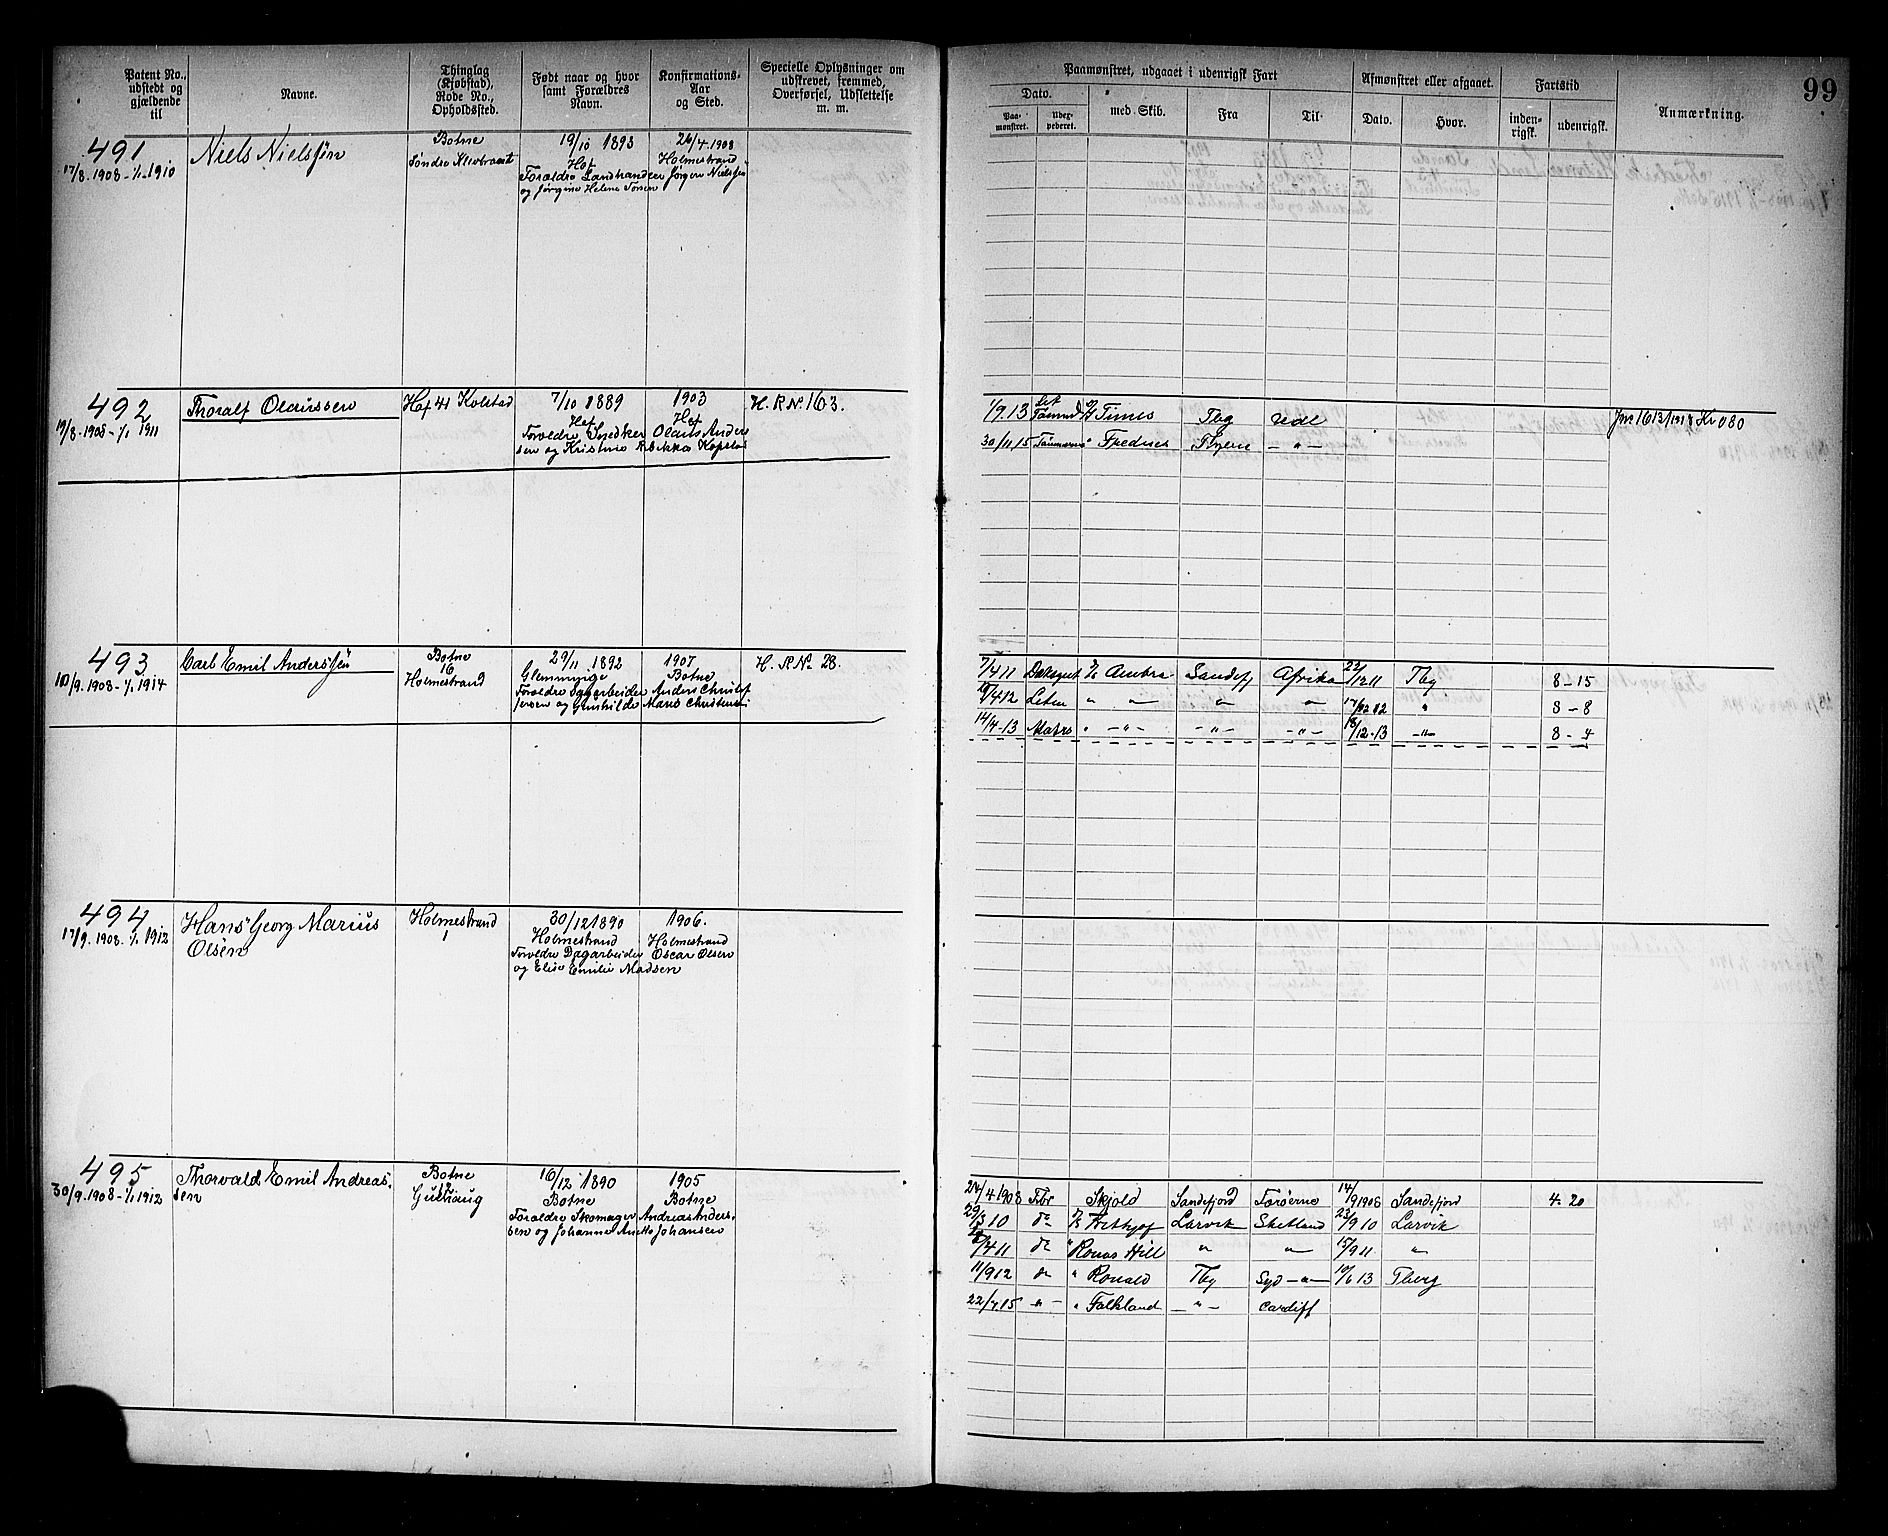 99
Patent No., udstedt og gjældende til
Navne.
Thinglag (Kjøbstad), Rode No., Opholdssted.
Født naar og hvor samt Forældres Navn.
Konfirmations- Aar og Sted.
Specielle Oplysninger om udskrevet, fremmed, Overførsel, Udslettelse m. m.
Paamønstret, udgaaet i udenrigsk Fart
Dato.
Paa- mønstret.
med Skib.
Fra
Til
Afmønstret eller afgaaet.
Dato.
Hvor.
Fartstid
inden- rigsk.
udenrigsk.
Anmærkning.
491
17/8.1908-1/1-1910
Niels Nielssøn
Botne
Søndre
19/10 1893
Hof
Forældre
og Jørgine Helene
26/4.1908
Holmestrand
Jørgen Nielssøn
492
19/8-1908-1/1 1911
Thoralf Olaussen
Hof 41 Kolstad
7/10 1889
Hof
Forældre Snedker
sen og Kristine
1903
Hof
Olaus Anders
H. R No 163.
1/9.13 Times Tbg Udl
30/11.15 Frednes
493
10/9.1908-1/1 1914
Carl Emil Anderssen
Botne
16
Holmestrand
29/11 1892
Glemminge
Forældre Dagarbeider
sen og Gunhilde
1907
Botne
Anders Christof
Marie
H. R No 28.
7/4 11 Ambra Sandefj Afrika 22/12 11 Tbg 8-15
4.12 " " " " 17/12 12 " 8-8
14/4-13 Matro " -"- -"- -"- 18/12-13 -"- 8-4
494
17/9.1908.1/1.1912
Hans Georg Marius
Olsen
Holmestrand
1
30/12 1890
Holmestrand
Forældre Dagarbeider
og Elise Emilie Madsen
1906.
Holmestrand
Oscar Olsen
495
30/9.1908-1/1 1912
Thorvald Emil Andreas-
sen
Botne
12
Gullhaug
10/12 1890
Botne
Forældre Skomager
sen og Johanne
1905
Botne
Andreas Anders-
Johansen
24/4 1908 Fbr Skjold Sandefjord Færøerne 14/9 1908 Sandefjord 4-20
10 do Larvik Shetland 23/9 10 Larvik
4 11 do " Ronas Hill " " 15/9 11 "
11/9 12 do " Ronald Tbg Syd -"- 13 Tberg
22/ 15 -"- " Falkland -"- Cardiff